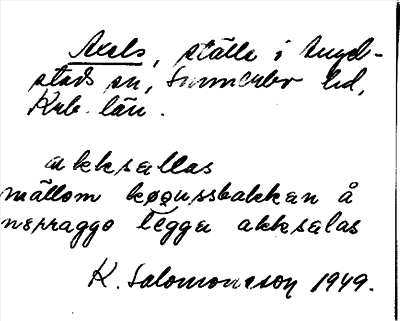 Axels, ställe i Angel-
stads sn, Sunnerbo hd,
Krb. län.
akksallas
mällom køøussbakkan å
nærraggo legga akksalas
K. Salomonsson 1949.